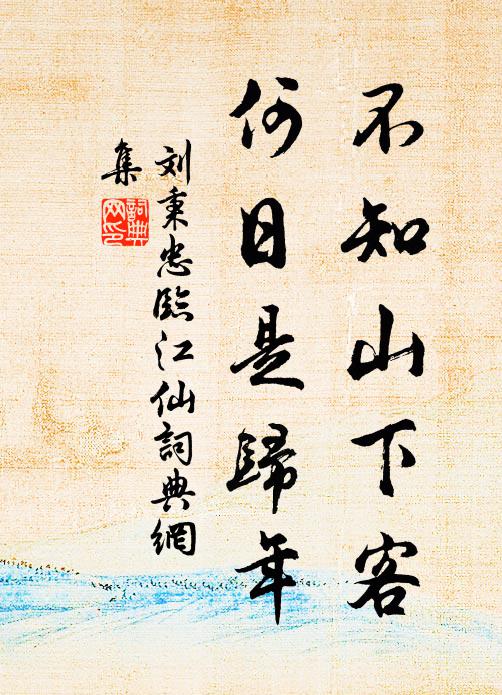 不知山下客
何日是歸年
刘秉忠臨江仙詞典網
集
詞典
网印